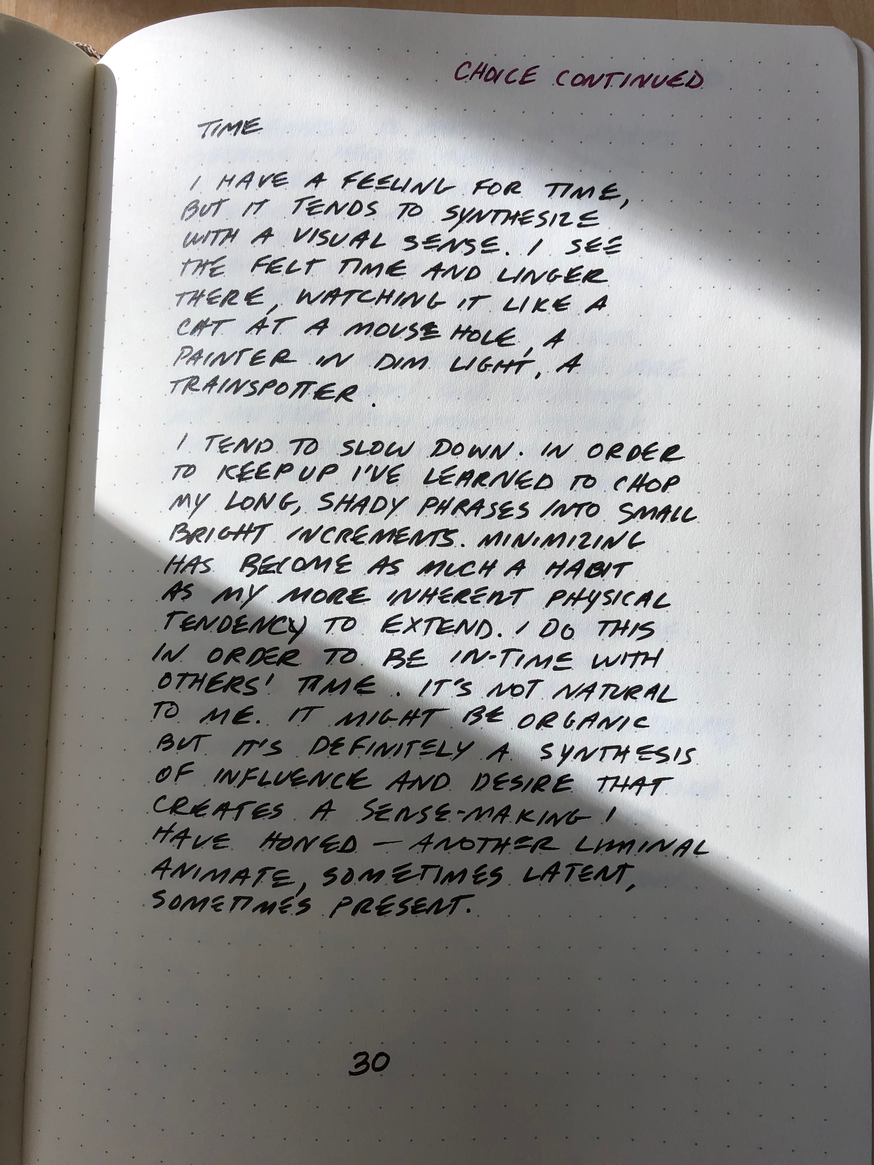 CHOICE CONTINUED
TIME
I HAVE A FEELING FOR TIME,
BUT IT TENDS TO SYNTHESIZE
WITH A VISUAL SENSE. I SEE
THE FELT TIME AND LINGER
THERE, WATCHING IT LIKE A
CAT AT A MOUSE HOLE, A
PAINTER IN DIM LIGHT, A
TRAINSPOTTER.
I TEND TO SLOW DOWN. IN ORDER
TO KEEP UP I'VE LEARNED TO CHOP
MY LONG, SHADY PHRASES INTO SMALL
BRIGHT INCREMENTS. MINIMIZING
HAS BECOME AS MUCH A HABIT
AS MY MORE INHERENT PHYSICAL
TENDENCY TO EXTEND. I DO THIS
IN ORDER TO BE IN-TIME WITH
OTHERS' TIME. IT'S NOT NATURAL
TO ME. IT MIGHT BE ORGANIC
BUT IT'S DEFINITELY A SYNTHESIS
OF INFLUENCE AND DESIRE THAT
CREATES A SENSE-MAKING I
HAVE HONED — ANOTHER LIMINAL
ANIMATE, SOMETIMES LATENT,
SOMETIMES PRESENT.
30